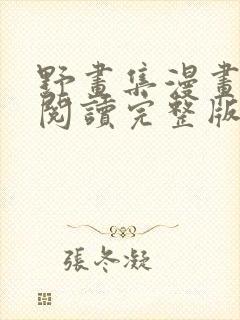 野畫集漫畫
閱讀完整版
張冬凝